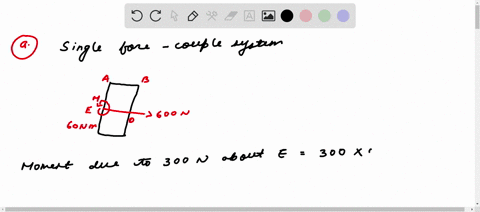 a. Single force - couple system
A B
M
E → 600 N
D
60Nm
Moment due to 300 N about E = 300 x